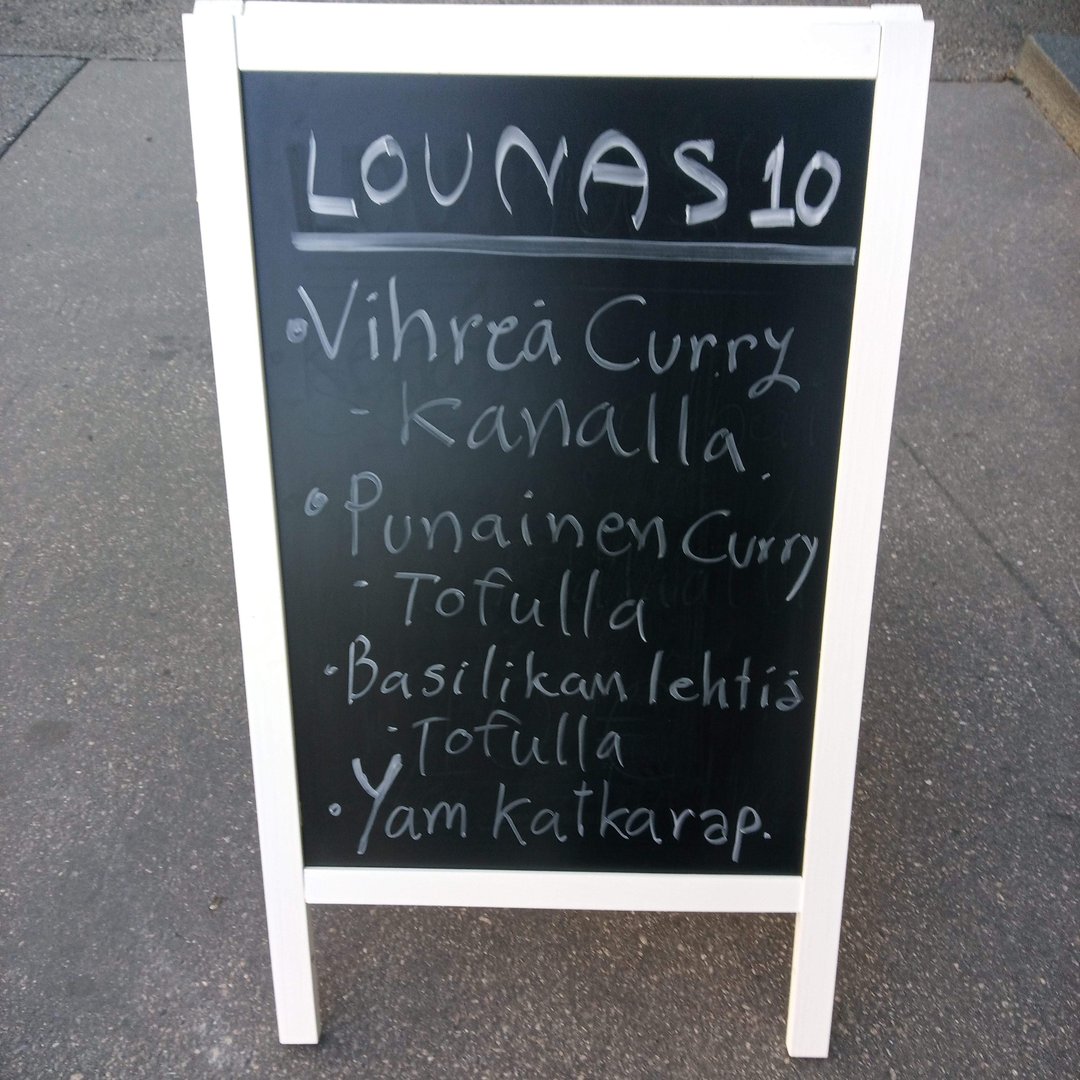 LOUNAS 10
• Vihreä Curry
- Kanalla.
• Punainen Curry
- Tofulla
• Basilikan lehtiä
- Tofulla
• Yam Katkarap.